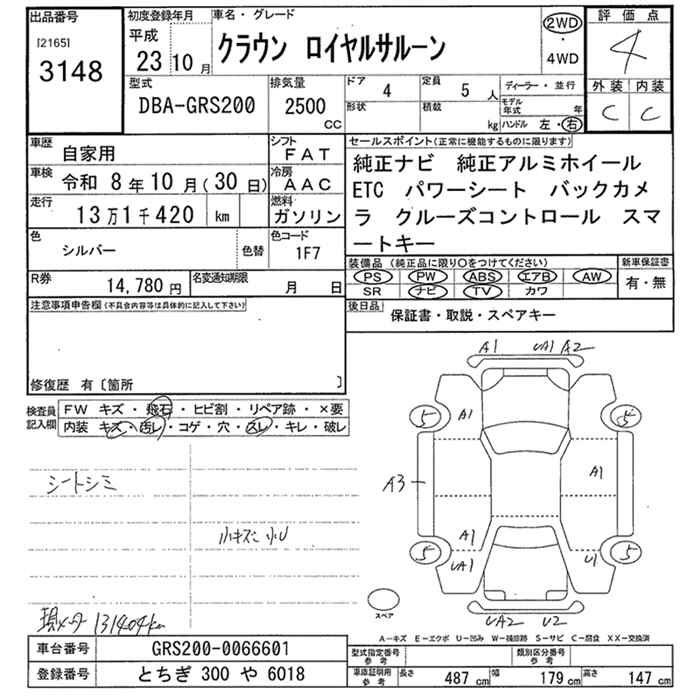 出品番号
[2165]
3148
初度登録年月
平成
23 10月
車名・グレード
クラウン ロイヤルサルーン
2WD
・
4WD
評価点
4
外装 内装
C C
型式
DBA-GRS200
排気量
2500
CC
ドア 4
形状
定員 5 人
積載 kg
ディーラー・並行
モデル年式 年
ハンドル 左・右
車歴 自家用
シフト FAT
車検 令和 8年10月(30日)
冷房 AAC
走行 13万1千420 km
燃料 ガソリン
色 シルバー 色替
色コード 1F7
セールスポイント(正常に機能するものに限ります)
純正ナビ 純正アルミホイール
ETC パワーシート バックカメ
ラ クルーズコントロール スマ
ートキー
装備品(純正品に限り○をつけてください)
PS PW ABS エアB AW
SR ナビ TV カワ
新車保証書
有・無
R券 14,780円
名変通知期限 月 日
後日品 保証書・取説・スペアキー
注意事項申告欄(不具合内容等は具体的に記入して下さい)
修復歴 有〔箇所 〕
検査員
記入欄
FW キズ・飛石・ヒビ割・リペア跡・×要
内装 キズ・汚レ・コゲ・穴・スレ・キレ・破レ
シートシミ
小キズ 小U
現メータ 131404km
A1 UA1 A2
5 A1 5
A3 A1
A1
5 UA1 U1 5
UA2 U2
スペア
A-キズ E-エクボ U-凹み W-補修跡 S-サビ C-腐食 XX-交換済
車台番号 GRS200-0066601
登録番号 とちぎ 300 や 6018
型式指定番号
参考
類別区分番号
参考
車庫証明用
参考
長さ 487 cm 幅 179 cm 高さ 147 cm